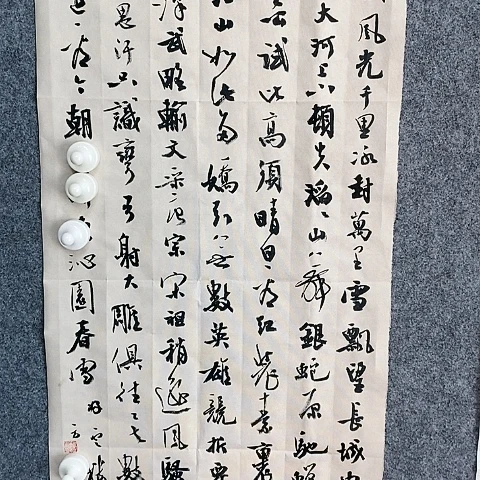 風光千里冰封萬里雪飄望長城内
大河上下頓失滔滔山舞銀蛇原馳蠟
公試比高須晴日看紅裝素裹
江山如此多嬌引無數英雄競折腰
漢武略輸文采唐宗宋祖稍遜風騷
思汗只識彎弓射大雕俱往矣數
還看今朝 沁園春雪